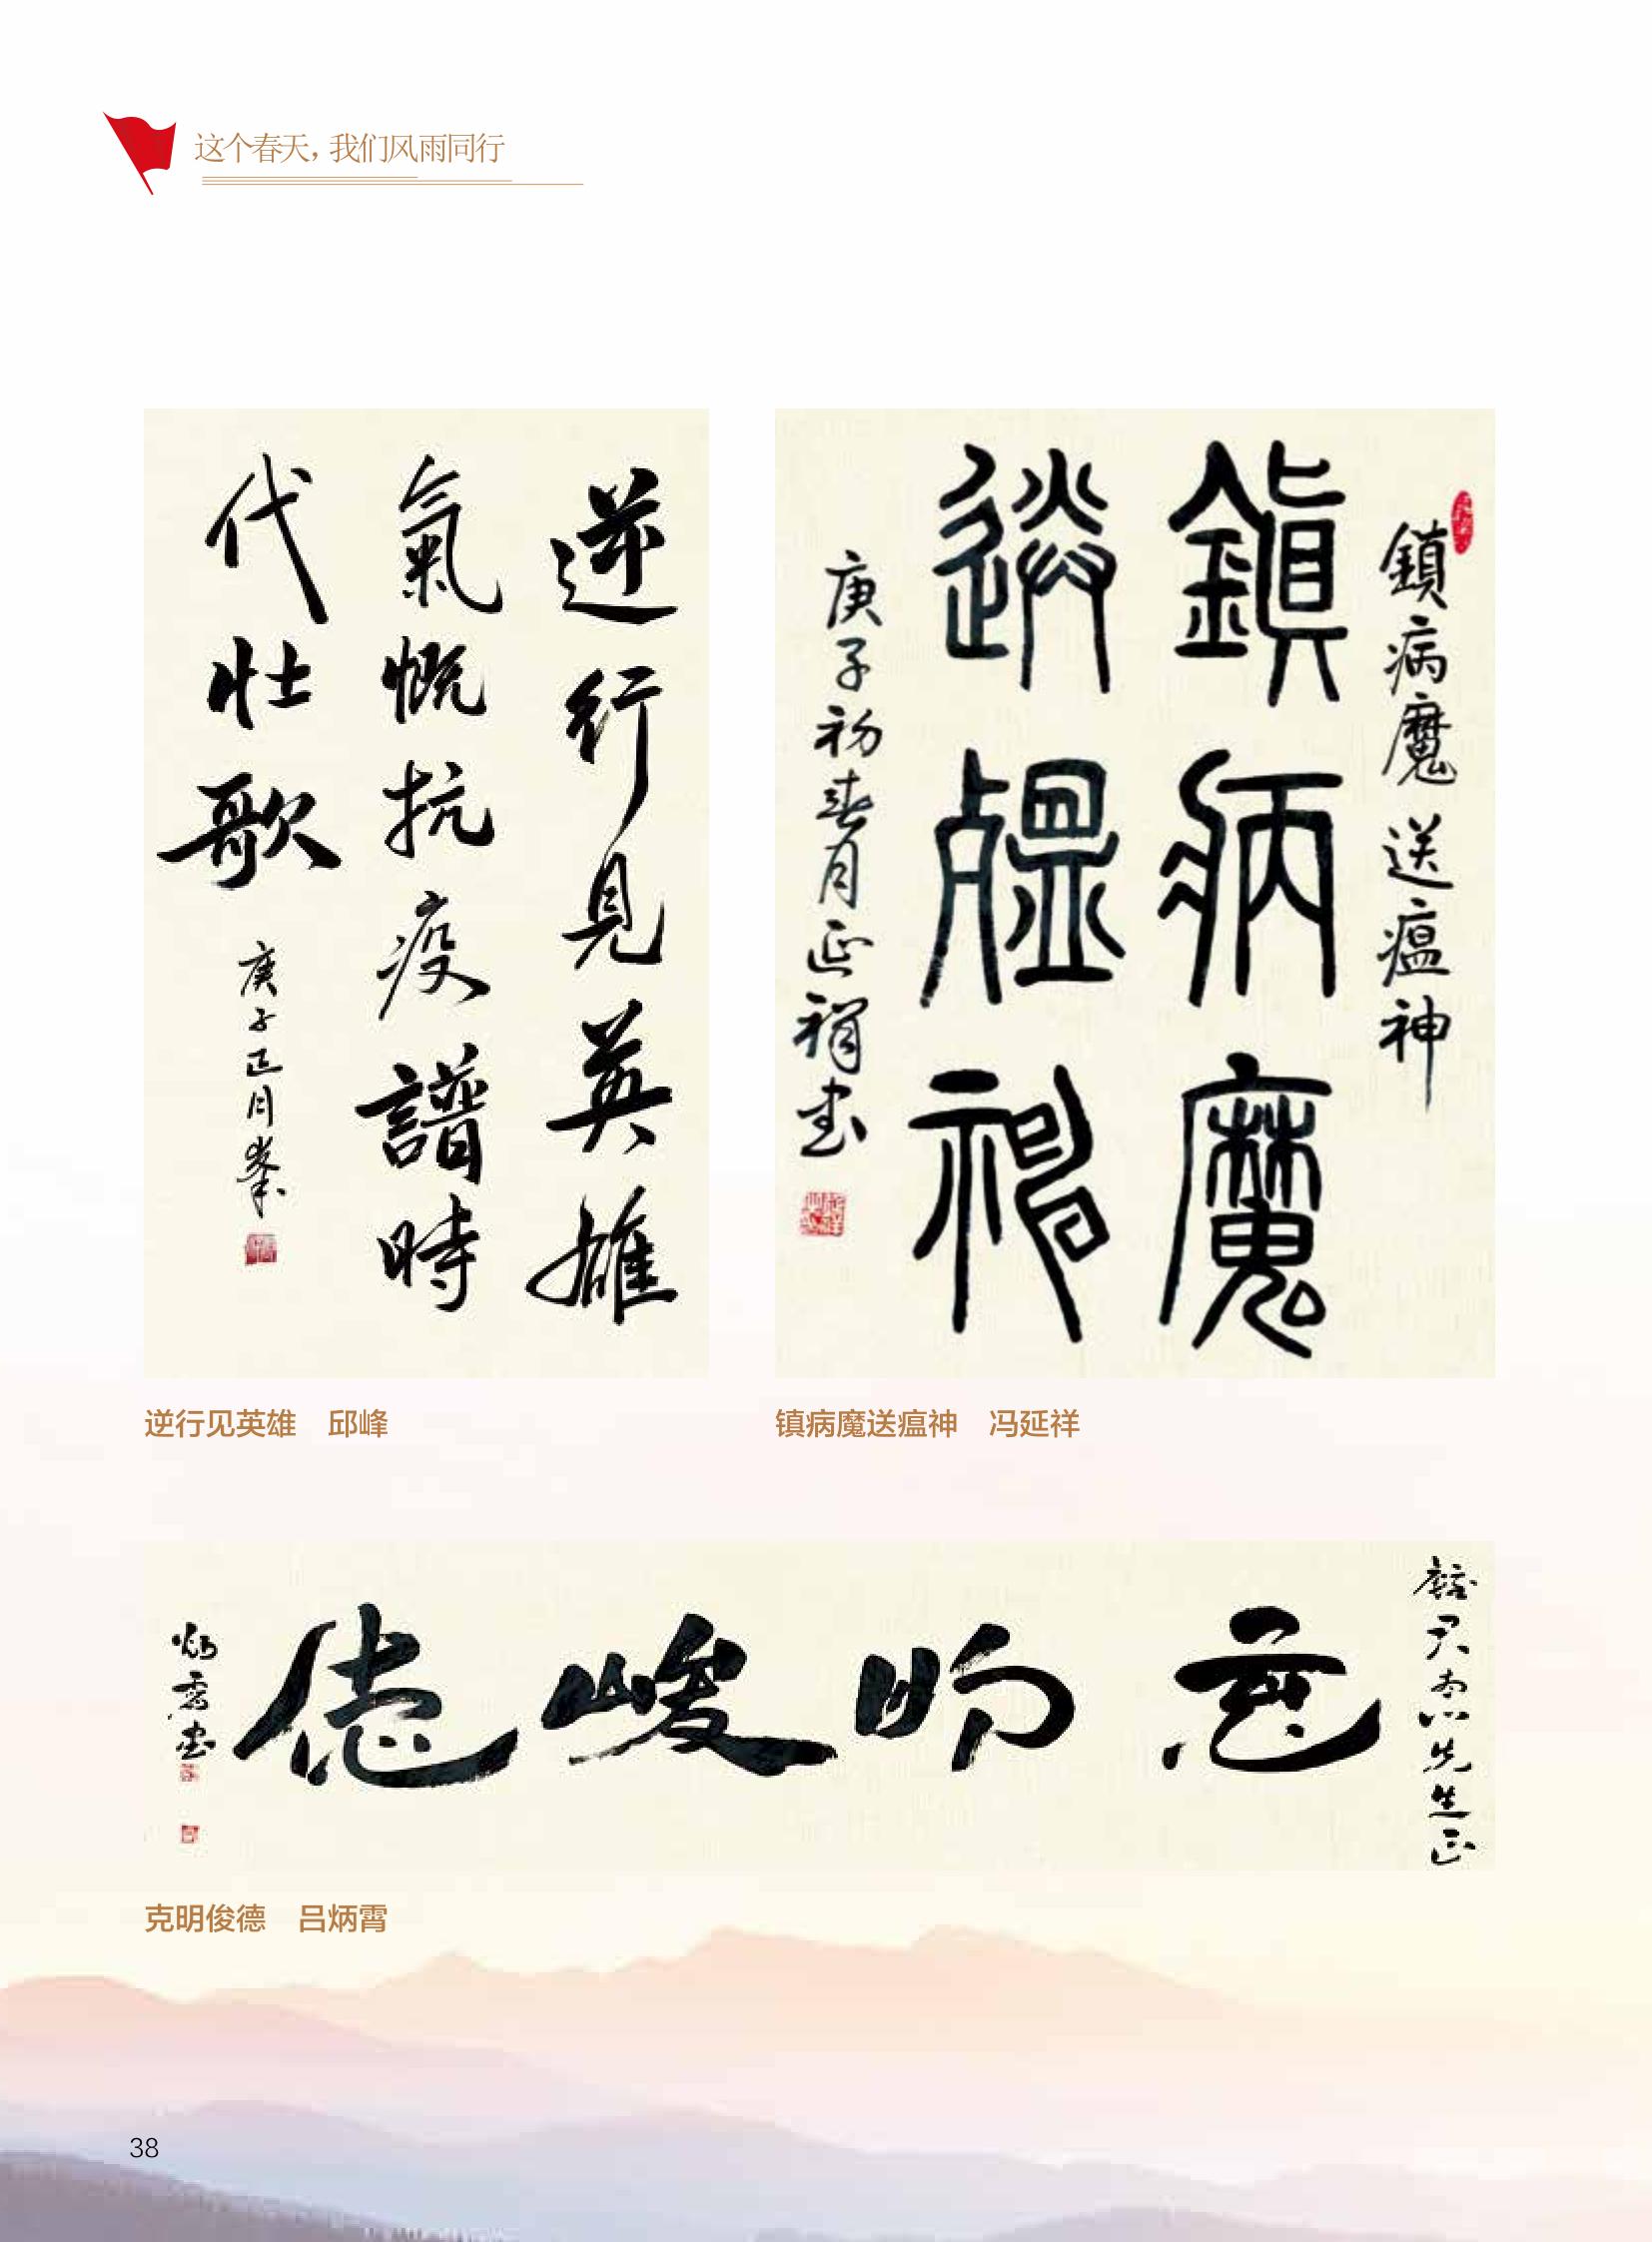 这个春天，我们风雨同行
逆行見英雄
氣慨抗疫譜時
代壮歌
庚子正月峯
鎮病魔送瘟神
鎮病魔
送瘟神
庚子初春月延祥书
逆行见英雄　邱峰
镇病魔送瘟神　冯延祥
先生正
克明峻德
炳霄书
克明俊德　吕炳霄
38